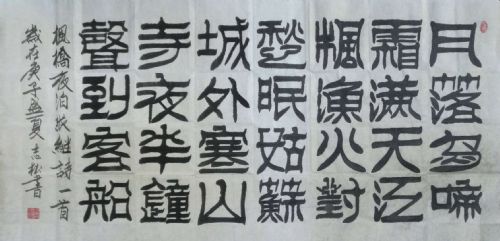 月落烏啼
霜滿天江
楓漁火對
愁眠姑蘇
城外寒山
寺夜半鐘
聲到客船
楓橋夜泊張继詩一首
歲在庚子盛夏志松書